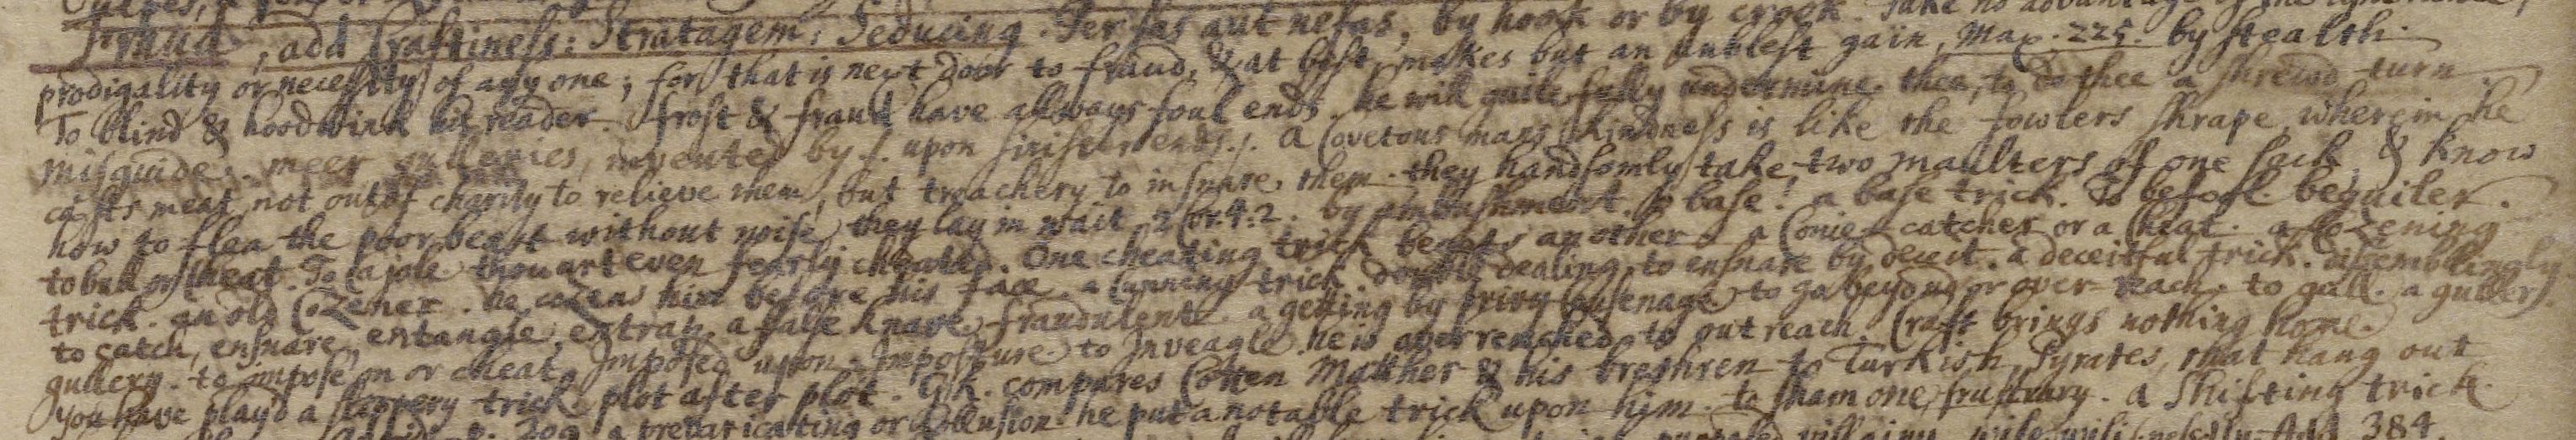 Fraud, add Craftiness: Stratagem: Seducing. Per fas aut nefas, by hook or by crook. Take no advantage of the ignorance,
prodigality or necessity of any one; for that is next door to fraud, & at best makes but an unblest gain, Max. 225. by stealth.
To blind & hoodwink his reader. frost & fraud have allways foul ends. he will guilefully undermine thee, to do thee a shrewd turn
misguide. meer gulleries, invented by .f. upon sinister ends .f. a Covetous mans kindness is like the fowlers shrape, wherein he
casts meat, not out of charity to relieve them, but treachery to insnare them. they handsomly take two maulters of one sack, & know
how to flea the poor beast without noise, they lay in wait, 2 Cor. 4.2. by ambushment. So base! a base trick. To befool. beguiler.
to bull or cheat. To Cajole thou art even fearly cheated. One cheating trick begets another a Conie-catcher or a Cheat. a Cozening
trick. an old Cozener. he cozens him before his face. a Cunning trick. double dealing, to ensnare by deceit. a deceitful trick. dissemblingly
to catch, ensnare, entangle, entrap. a false Knave. fraudulent. a getting by privy Cusenage to go beyond or over-reach. to gull. a guller.
gullery. to impose on or cheat. Imposed upon. Imposture to Inveagle. he is over reached. to out reach. Craft brings nothing home.
You have play'd a slippery trick. plot after plot. G.K. compares Cotten Mather & his brethren to Turkish Pyrates, that hang out
a prevaricating or Collusion. he put a notable trick upon him. to sham one. a Shifting trick.
Add 384